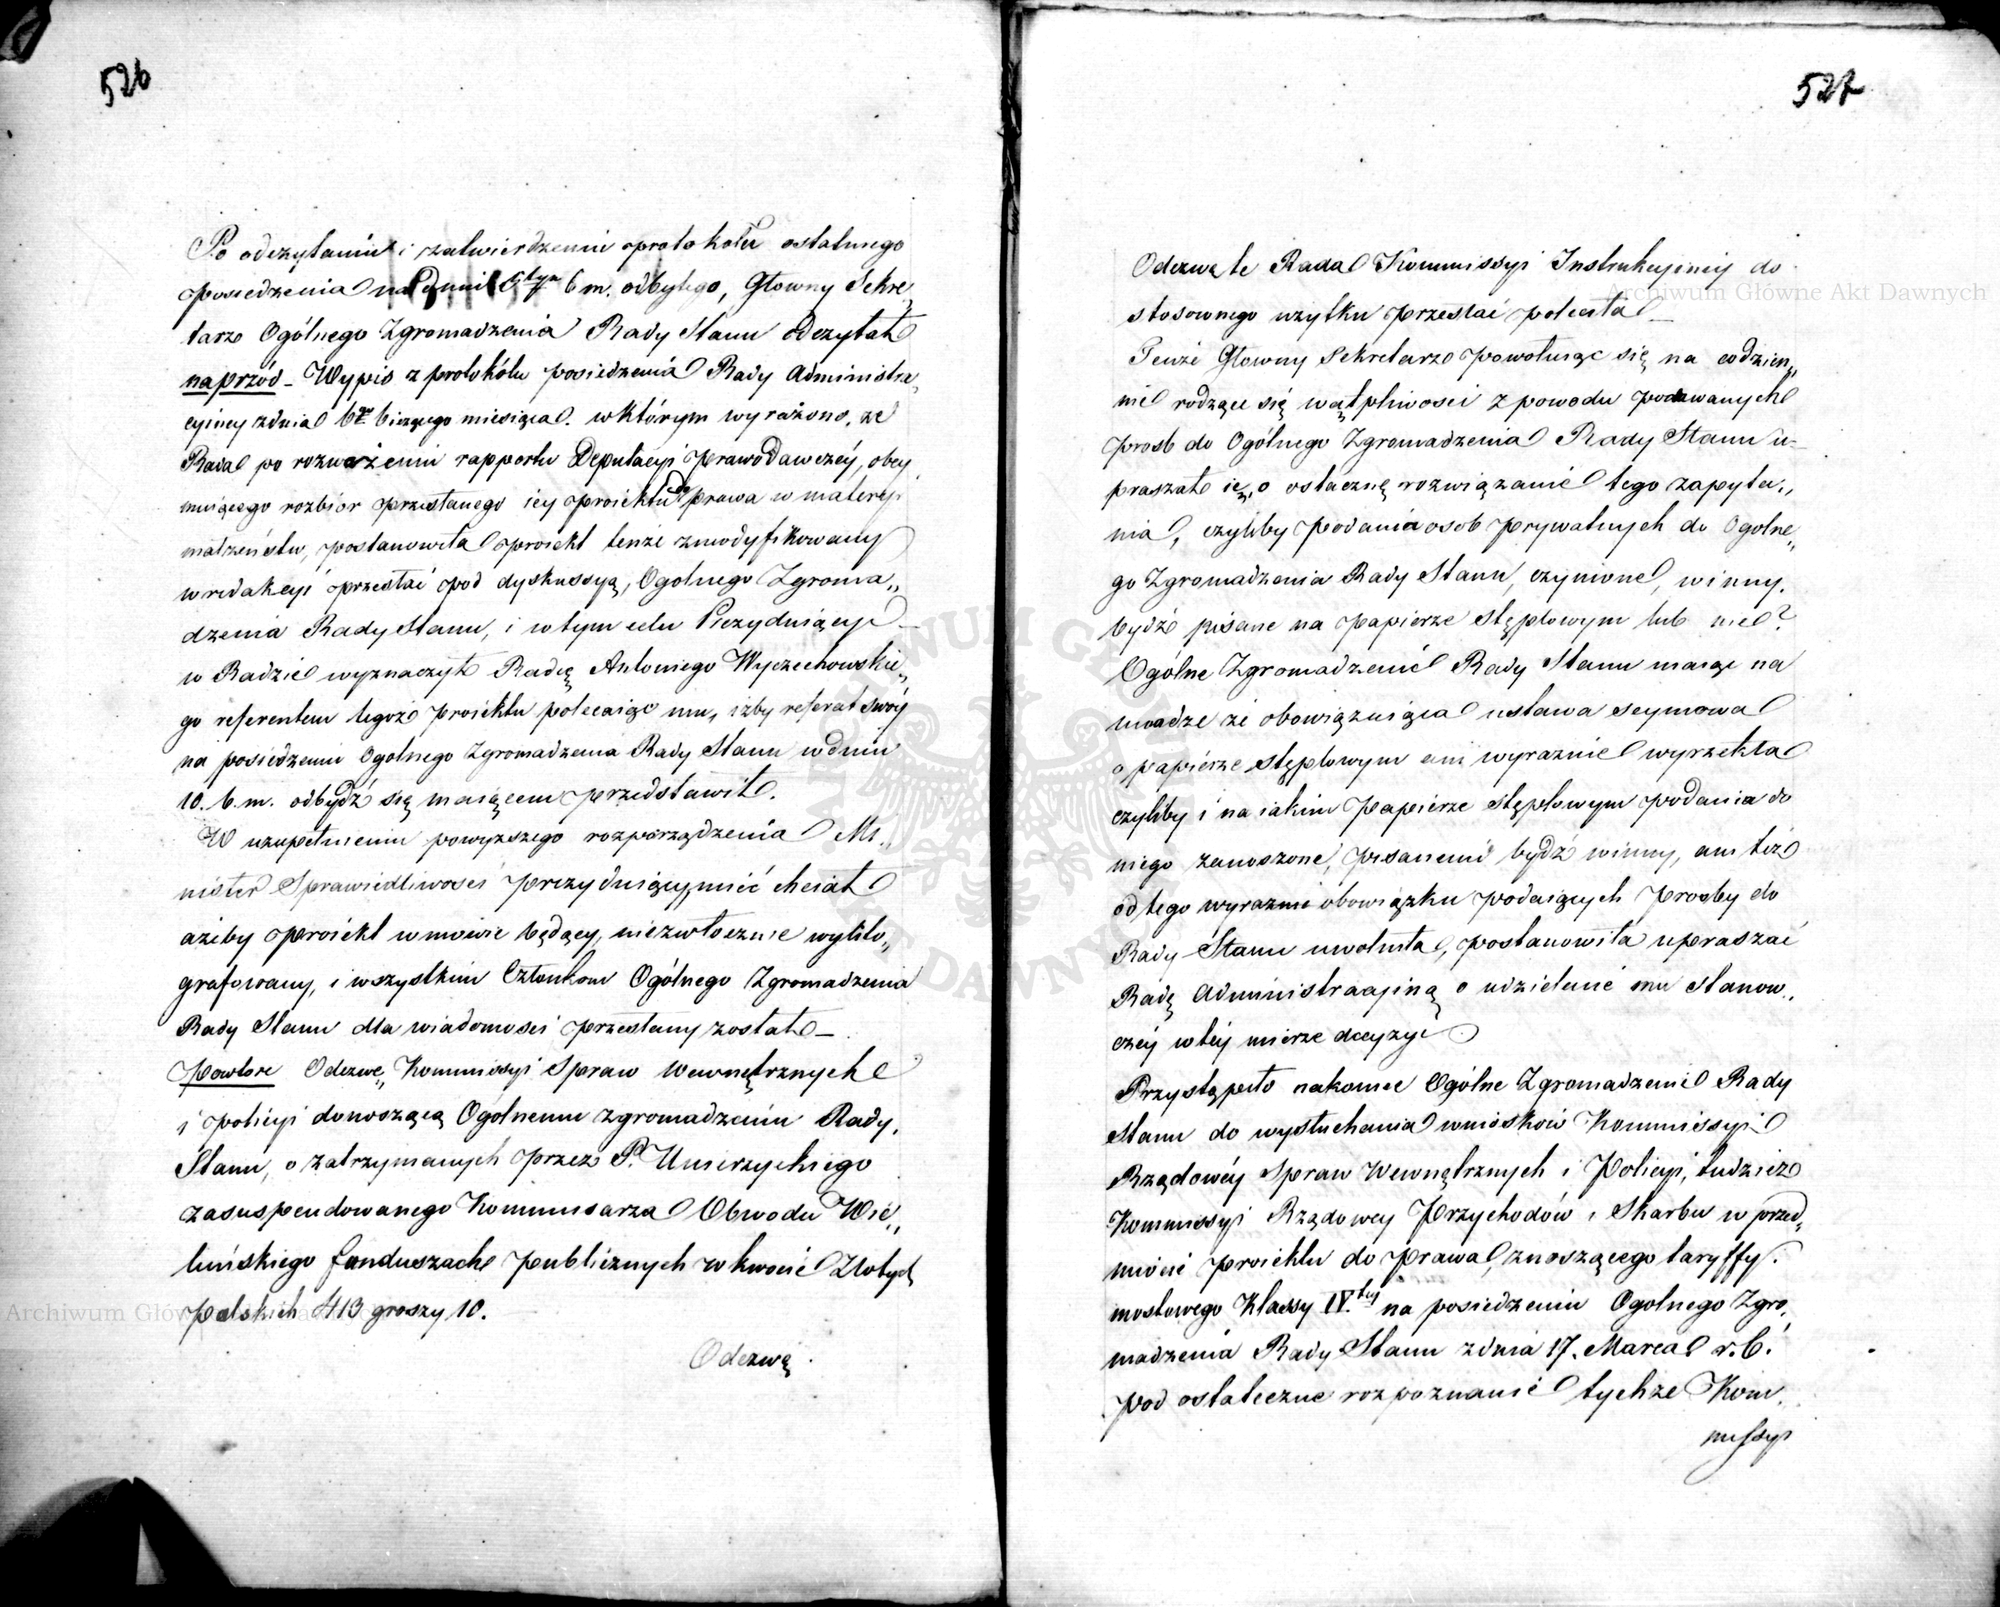 526
Po odczytaniu i zatwierdzeniu protokołu ostatniego
posiedzenia na dniu 6tym b m. odbytego, Głowny Sekre„
tarz Ogólnego Zgromadzenia Rady Stanu odczytał
naprzód – Wypis z protokółu posiedzenia Rady Administra„
cyiney z dnia 6go bieżącego miesiąca. w którym wyrażono, że
Rada po rozważeniu rapportu Deputacyi prawodawczéy, obey
muiącego rozbiór przesłanego iey proiektu do prawa w materyi
małżeństw, postanowiła proiekt tenże zmodyfikowany
w redakcyi przesłać pod dyskussyą, Ogolnego Zgroma„
dzenia Rady Stanu, i w tym celu Prezyduiący
w Radzie wyznaczył Radcę Antoniego Wyczechowskie„
go referentem tegoż proiektu polecaiąc mu, iżby referat swóy
na posiedzeniu Ogolnego Zgromadzenia Rady Stanu w dniu
10. b. m. odbydź się maiącem przedstawił.
W uzupełnieniu powyższego rozporządzenia Mi„
nister Sprawiedliwości prezyduiący mieć chciał
ażeby proiekt w mowie będący, niezwłocznie wylito„
grafowany, i wszystkim Członkom Ogólnego Zgromadzenia
Rady Stanu dla wiadomości przesłany został –
powtore Odezwę, Kommissyi Spraw Wewnętrznych
i policyi donoszącą Ogólnemu zgromadzeniu Rady
Stanu, o zatrzymanych przez P. Umierzyckiego
zasuspendowanego Kommisarza Obwodu Wie„
luńskiego funduszach publicznych w kwocie Złotych
polskich 413 groszy 10.
Odezwę
527
Odezwę te Rada Kommissyi Instrukcyiney do
stosownego użytku przesłać poleciła –
Tenże Głowny Sekretarz powołuiąc się na codzien„
nie rodzące się wątpliwości z powodu podawanych
prosb do Ogólnego Zgromadzenia Rady Stanu u-
praszał ię, o ostateczne rozwiązanie tego zapyta„
nia, czyliby podania osob prywatnych do Ogolne„
go Zgromadzenia Rady Stanu, czynione, winny
bydź pisane na papierze stęplowym lub nie?
Ogólne Zgromadzenie Rady Stanu maiąc na
uwadze że obowięzuiąca ustawa seymowa
o papierze stęplowym ani wyraznie wyrzekła
czyliby i na iakim papierze stęplowym podania do
niego zanoszone, pisanemi bydź winny, ani też
od tego wyraznie obowiązku podaiących prosby do
Rady Stanu uwolniła, postanowiła upraszać
Radę Administracyiną o udzielenie mu stanow„
czéy w téy mierze decyzyi
Przystąpiło nakoniec Ogólne Zgromadzenie Rady
Stanu do wysłuchania wniosków Kommissyi
Rządowéy Spraw Wewnętrznych i Policyi, tudzież
Kommissyi Rządowey Przychodów i Skarbu w przed„
miocie proiektu do prawa, znoszącego taryffy
mostowego Klassy IV.tey na posiedzeniu Ogolnego Zgro„
madzenia Rady Stanu z dnia 17. Marca r. b.
pod ostateczne rozpoznanie tychże Kom„
missyi
Archiwum Główne Akt Dawnych